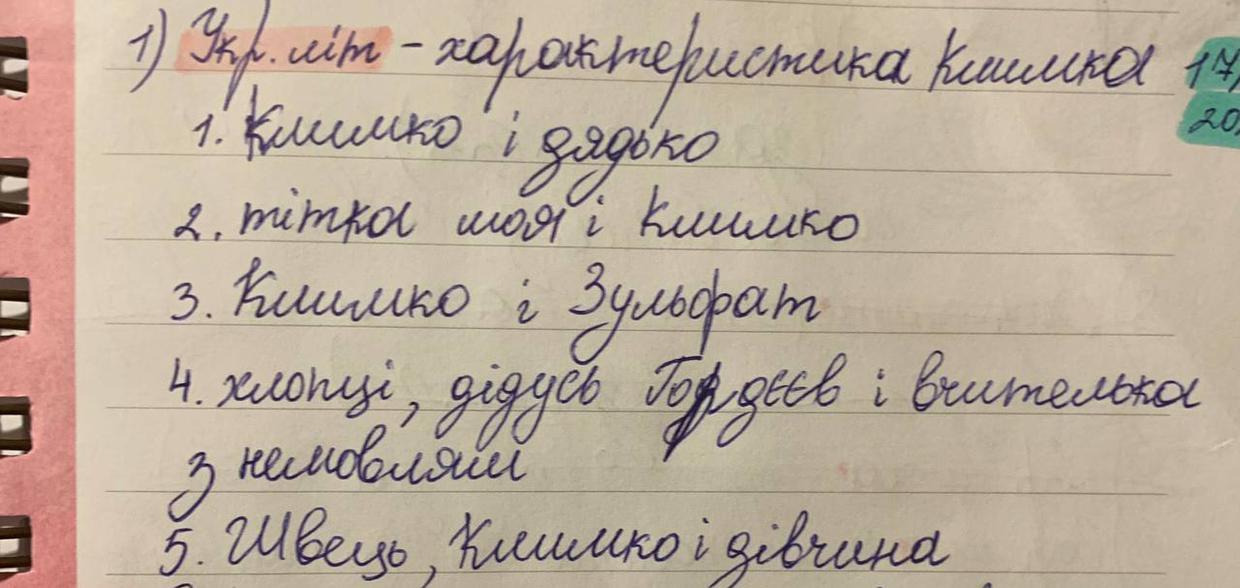 1) Укр. літ - характеристика Климка 17,
20,
1. Климко і дядько
2. тітка моя і Климко
3. Климко і Зульфат
4. хлопці, дідусь Гордєєв і вчителька
з немовлям
5. Швець, Климко і дівчина